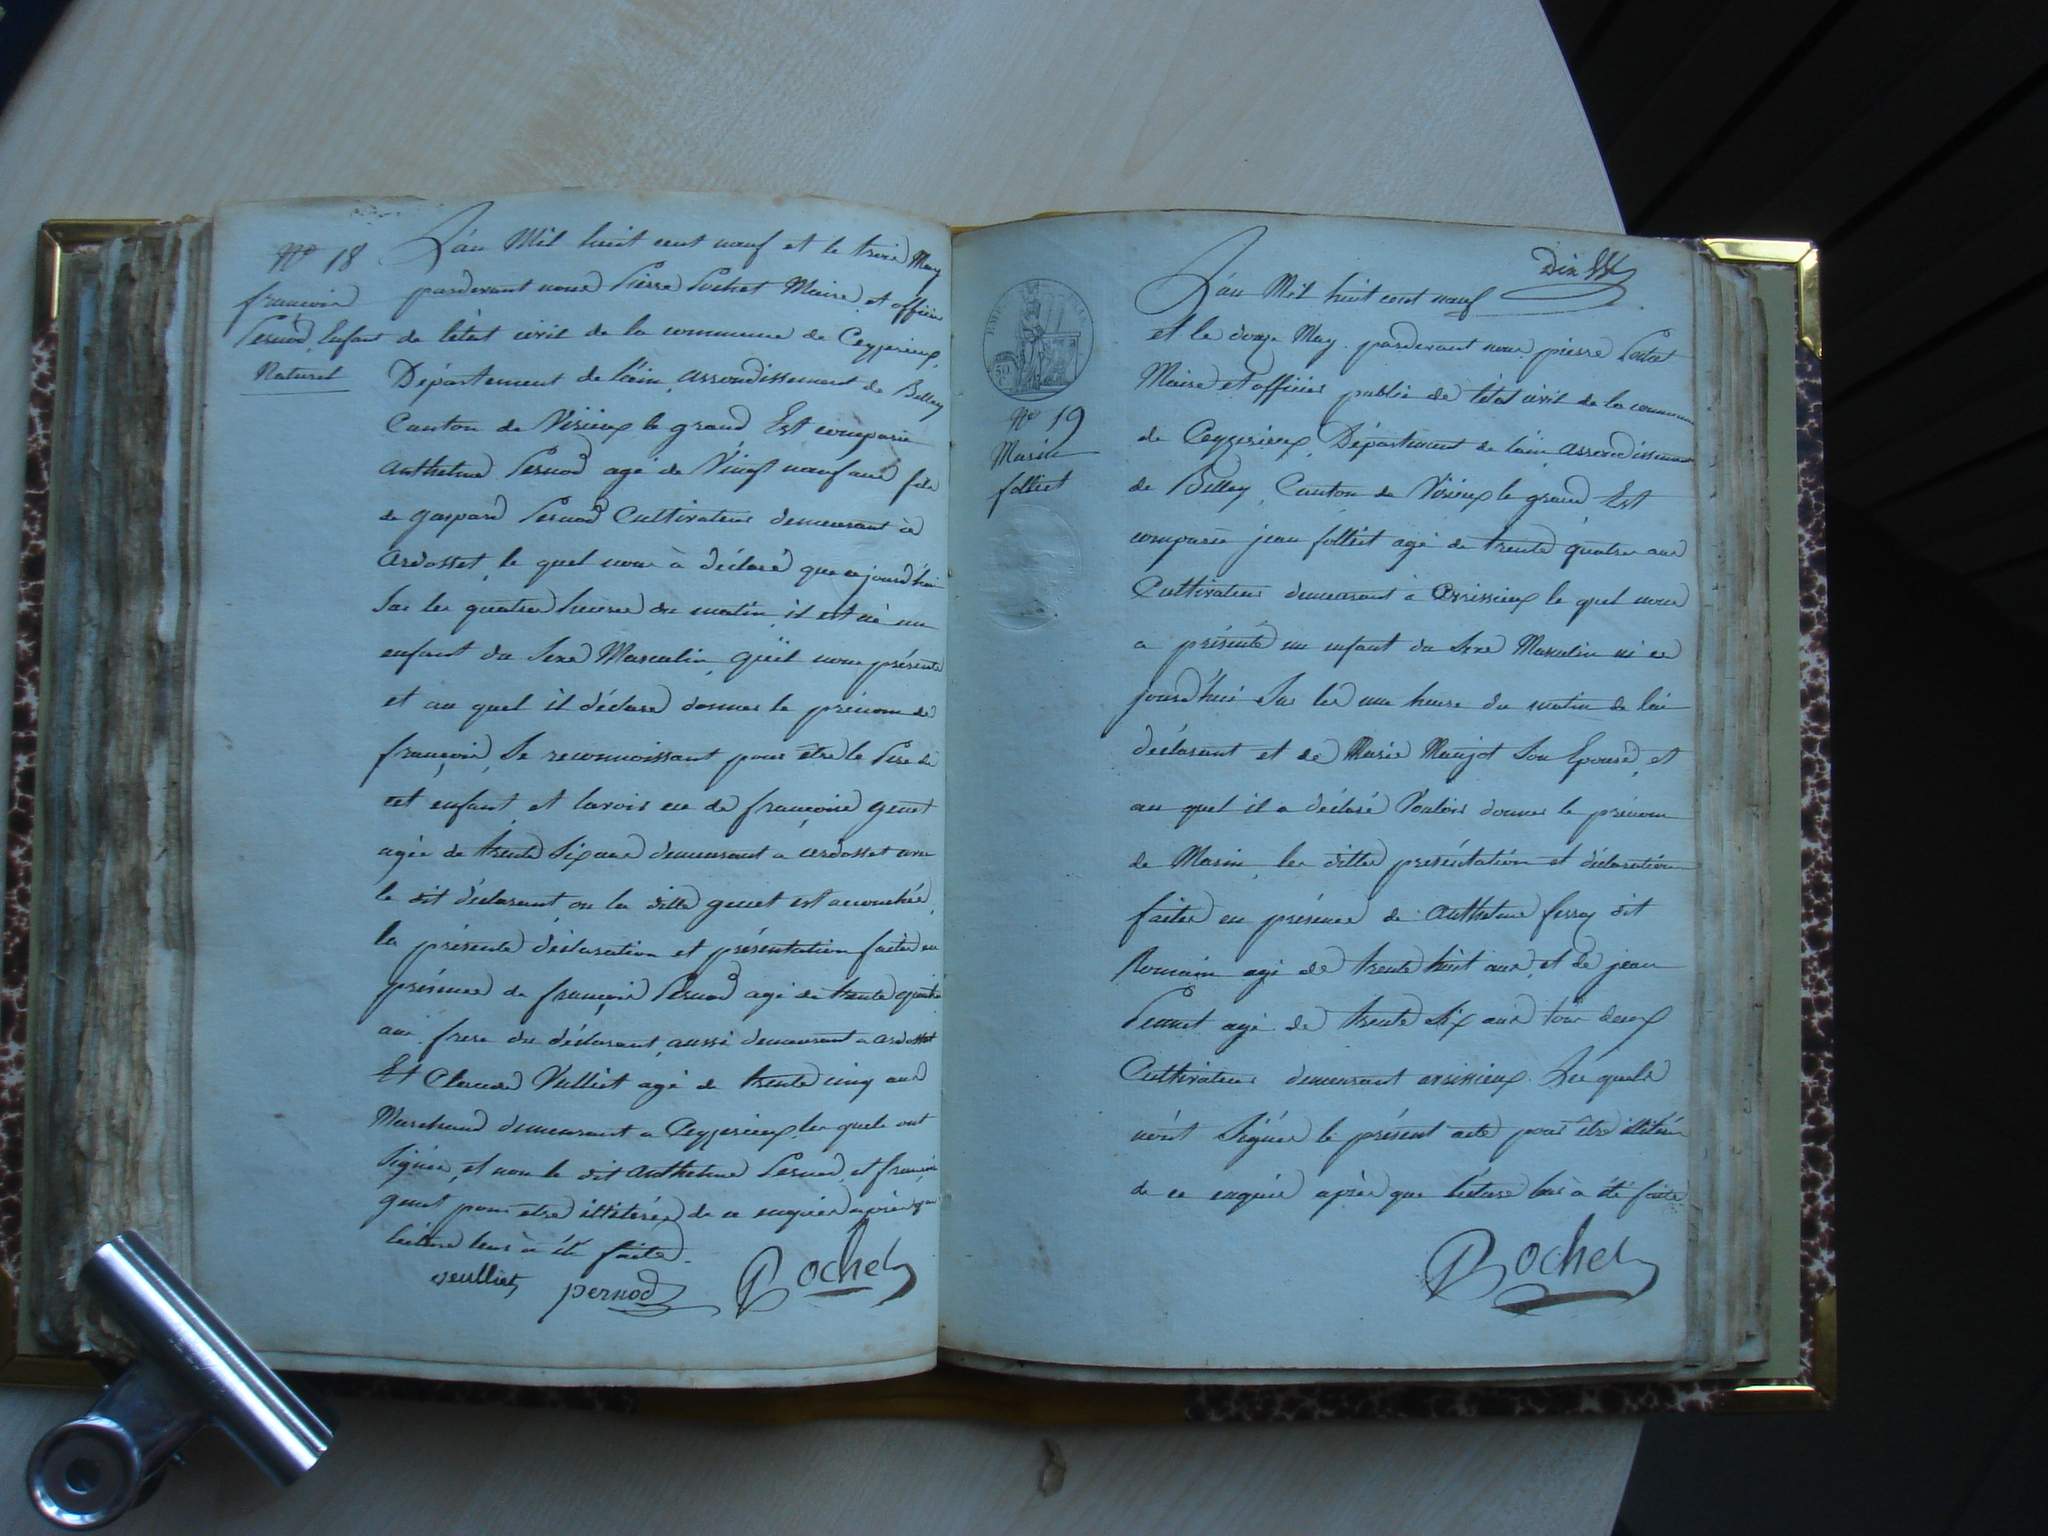 Nº 18
françois
Pernod Enfant
Naturel
L'an Mil huit cent neuf et le treize May
pardevant nous Pierre Pochet Maire et officier
de l'état civil de la commune de Ceyzerieux
Département de l'ain, arrondissement de Belley
Canton de Virieux le grand Est comparu
Anthelme Pernod agé de Vingt neuf ans fils
de gaspard Pernod Cultivateur demeurant à
Ardosset, le quel nous à déclaré que ce jourd'hui
Sur les quatre heures du matin, il est né un
enfant du Sexe Masculin, qu'il nous présente
et au quel il déclare donner le prénom de
françois, Se reconnoissant pour être le Pere de
cet enfant, et l'avoir eu de françoise genet
agée de trente Six ans demeurant a ardosset avec
le dit déclarant, ou la ditte genet est accouchée,
la présente déclaration et présentation faites en
présence de françois Pernod agé de trente quatre
ans frere du déclarant, aussi demeurant a ardosset
Et Claude Vulliet agé de trente cinq ans
Marchand demeurant a Ceyzerieux les quels ont
Signés, et non le dit Anthelme Pernod, et françoise
genet pour etre illitérés de ce enquis après que
lecture leur à été faite.
veulliet pernod Pochet
Dix
Nº 19
Marin
folliet
L'an Mil huit cent neuf
et le douze May pardevant nous pierre Pochet
Maire et officier public de l'état civil de la commune
de Ceyzerieux, Département de l'ain, arrondissement
de Belley, Canton de Virieux le grand Est
comparu jean folliet agé de trente quatre ans
Cultivateur demeurant à Avrissieux le quel nous
a présenté un enfant du Sexe Masculin né ce
jourd'hui Sur les une heure du matin de lui
déclarant et de Marie Maujot Son Epouse, et
au quel il a déclaré Vouloir donner le prénom
de Marin, les dittes présentation et déclaration
faites en présence de Anthelme ferroz dit
Romain agé de trente huit ans, et de jean
Pennet agé de trente Six ans tous deux
Cultivateurs demeurant avrissieux. Les quels
n'ont Signés le présent acte pour être illitérés
de ce enquis après que lecture leur à été faite
Pochet